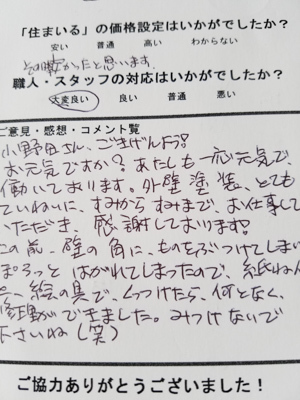 「住まいる」の価格設定はいかがでしたか？
安い　普通　高い　わからない
かったと思います。
職人・スタッフの対応はいかがでしたか？
大変良い　良い　普通　悪い
ご意見・感想・コメント覧
小野田さん、ごきげんよう！
お元気ですか？あたしも一応元気で、
働いております。外壁塗装、とても
ていねいに、すみからすみまで、お仕事して
いただき、感謝しております！
この前、壁の角に、ものをぶつけてしまい
ぽろっと はがれてしまったので、紙ねん
、絵の具で、くっつけたら、何となく、
修理ができました。みつけないで
下さいね（笑）
ご協力ありがとうございました！